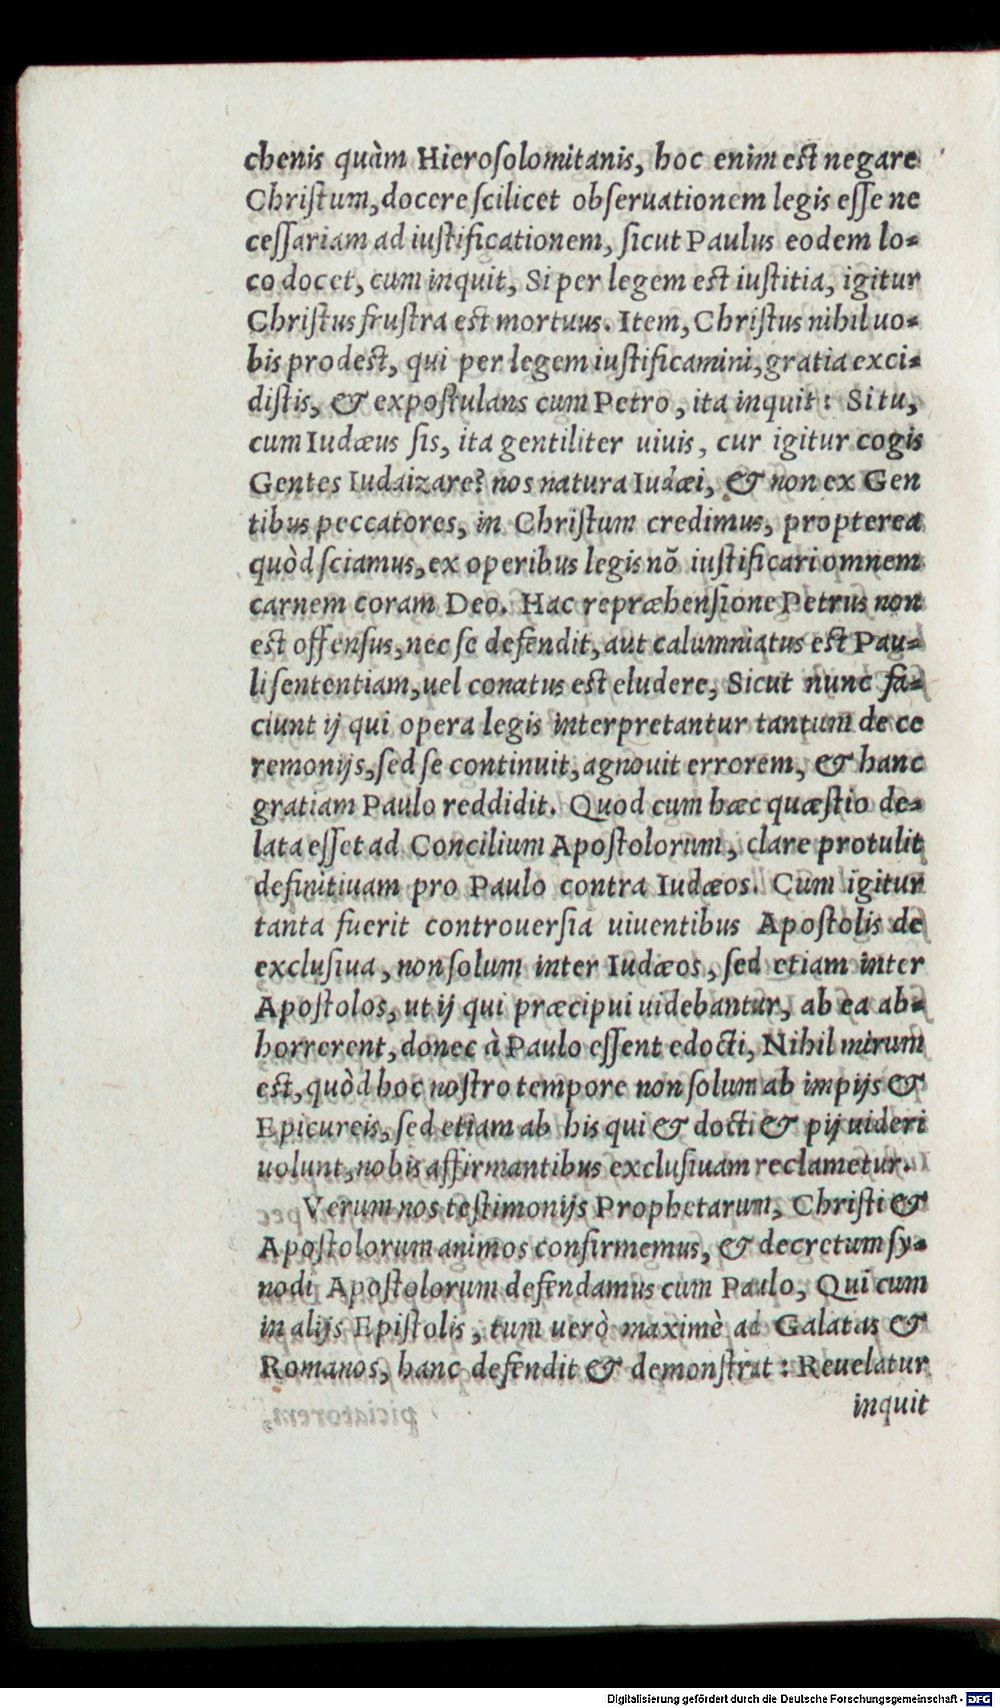 chenis quàm Hieroſolomitanis, hoc enim eſt negare
Chriſtum, docere ſcilicet obſeruationem legis eſſe ne
ceſſariam ad iuſtificationem, ſicut Paulus eodem lo-
co docet, cum inquit, Si per legem eſt iuſtitia, igitur
Chriſtus fruſtra eſt mortuus. Item, Chriſtus nihil uo-
bis prodeſt, qui per legem iuſtificamini, gratia exci-
diſtis, & expoſtulans cum Petro, ita inquit: Si tu,
cum Iudæus ſis, ita gentiliter uiuis, cur igitur cogis
Gentes Iudaizare? nos natura Iudæi, & non ex Gen
tibus peccatores, in Chriſtum credimus, propterea
quòd ſciamus, ex operibus legis nõ iuſtificari omnem
carnem coram Deo. Hac repræhenſione Petrus non
eſt offenſus, nec ſe defendit, aut calumniatus eſt Pau-
li ſententiam, uel conatus eſt eludere, Sicut nunc fa-
ciunt ij qui opera legis interpretantur tantum de ce
remonijs, ſed ſe continuit, agnouit errorem, & hanc
gratiam Paulo reddidit. Quod cum hæc quæſtio de-
lata eſſet ad Concilium Apoſtolorum, clare protulit
definitiuam pro Paulo contra Iudæos. Cum igitur
tanta fuerit controuerſia uiuentibus Apoſtolis de
excluſiua, non ſolum inter Iudæos, ſed etiam inter
Apoſtolos, ut ij qui præcipui uidebantur, ab ea ab-
horrerent, donec à Paulo eſſent edocti, Nihil mirum
eſt, quòd hoc noſtro tempore non ſolum ab impijs &
Epicureis, ſed etiam ab his qui & docti & pij uideri
uolunt, nobis affirmantibus excluſiuam reclametur.
Verum nos teſtimonijs Prophetarum, Chriſti &
Apoſtolorum animos confirmemus, & decretum ſy-
nodi Apoſtolorum defendamus cum Paulo, Qui cum
in alijs Epiſtolis, tum uerò maximè ad Galatas &
Romanos, hanc defendit & demonſtrat: Reuelatur
inquit
Digitalisierung gefördert durch die Deutsche Forschungsgemeinschaft - DFG